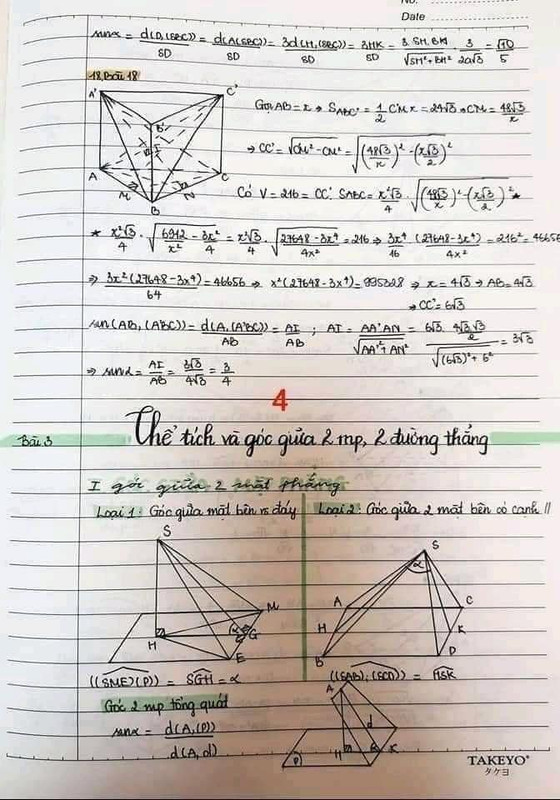 No.
Date
sinα = d(D,(SBC))/SD = d(A,(SBC))/SD = 3d(H,(SBC))/SD = 3HK/SD = 3.SH.BH/√(SH²+BH²) . 3/2a√3 = √10/5
18, Bài 18
A' C' B' I A C M N B
Gọi AB = x → S_ABC' = 1/2 C'M x = 24√3 → C'M = 48√3/x
→ CC' = √(C'M² - CM²) = √((48√3/x)² - (x√3/2)²)
Có V = 216 = CC'. S_ABC = x²√3/4 . √((48√3/x)² - (x√3/2)²) *
* x²√3/4 . √(6912/x² - 3x²/4) = x²√3/4 . √((27648 - 3x⁴)/4x²) = 216 → 3x⁴/16 . (27648 - 3x⁴)/4x² = 216² = 46656
→ 3x²(27648 - 3x⁴)/64 = 46656 → x²(27648 - 3x⁴) = 995328 → x = 4√3 → AB = 4√3
→ CC' = 6√3
sin(AB, (A'BC)) = d(A,(A'BC))/AB = AI/AB ; AI = AA'.AN/√(AA'² + AN²) = 6√3 . 4√3.√3/2 / √((6√3)² + 6²) = 3√3
→ sinα = AI/AB = 3√3/4√3 = 3/4
4
Bài 3 Thể tích và góc giữa 2 mp, 2 đường thẳng
I góc giữa 2 mặt phẳng
Loại 1: Góc giữa mặt bên vs đáy
S M H α G E
((SME),(P)) = SGH = α
Loại 2: Góc giữa 2 mặt bên có cạnh //
S α A C H K B D
((SAB);(SCD)) = HSK
Góc 2 mp tổng quát
sinα = d(A,(P))/d(A,d)
A d H α K P
TAKEYO
タケヨ